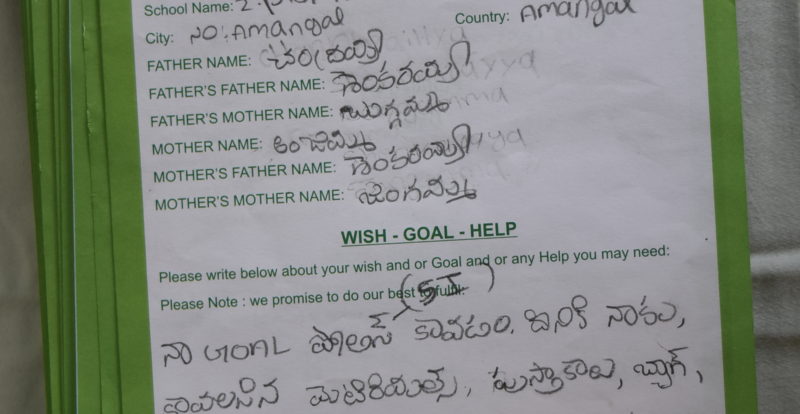 School Name: Z.P.
City: NO: Amangal Country: Amangal
FATHER NAME: చంద్రయ్య
FATHER'S FATHER NAME: శంకరయ్య
FATHER'S MOTHER NAME: బుగ్గమ్మ
MOTHER NAME: అంజమ్మ
MOTHER'S FATHER NAME: శంకరయ్య
MOTHER'S MOTHER NAME: జంగమ్మ
WISH - GOAL - HELP
Please write below about your wish and or Goal and or any Help you may need:
Please Note : we promise to do our best
(SI)
నా GOAL పోలీస్ కావడం. దినికి నాకు,
కావలసిన మెటిరియల్స్, పుస్తకాలు, బ్యాగ్,